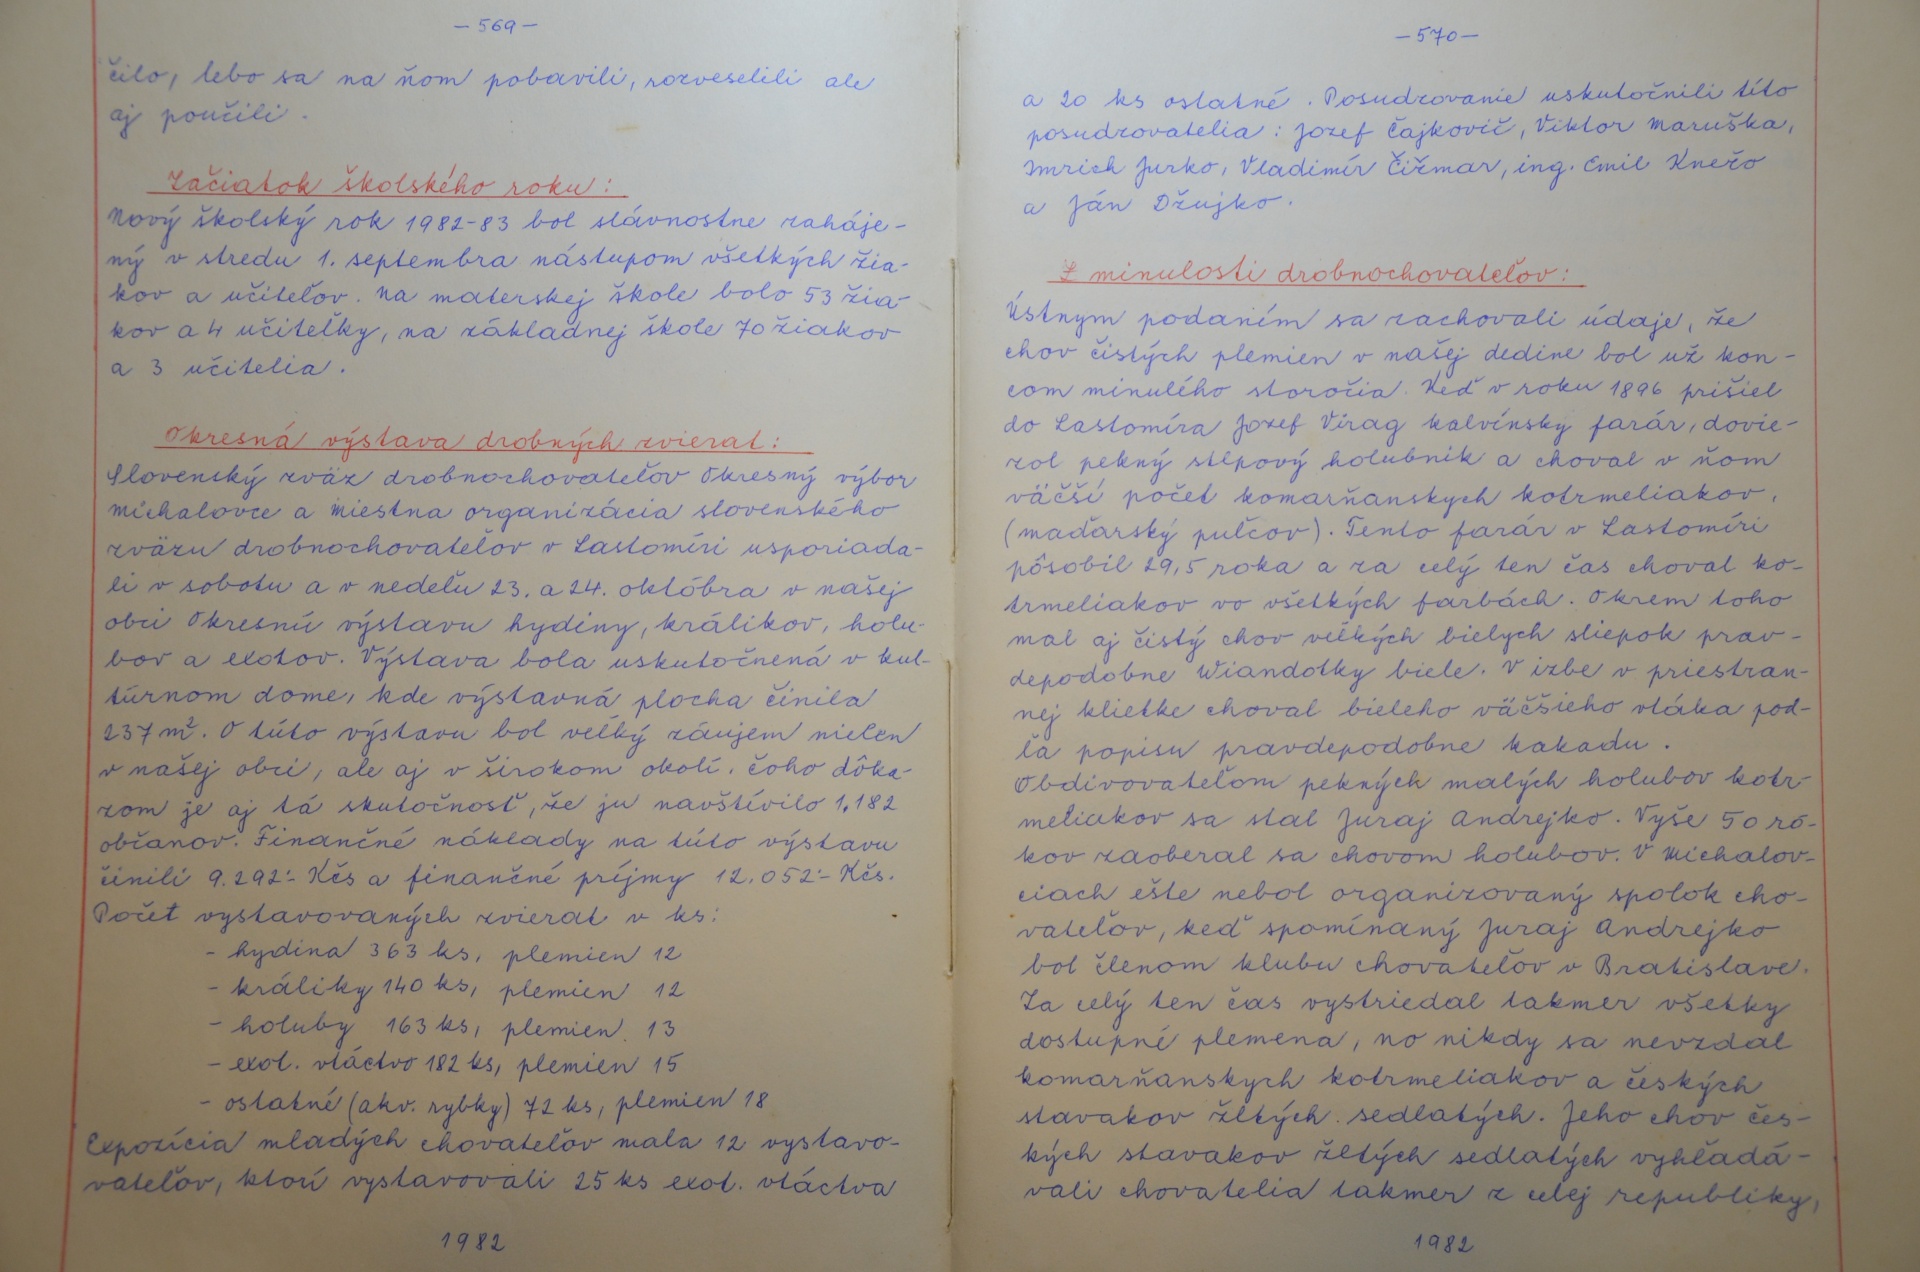 — 569 —
čilo, lebo sa na ňom pobavili, rozveselili ale
aj poučili.
Začiatok školského roku:
Nový školský rok 1982-83 bol slávnostne zaháje-
ný v stredu 1. septembra nástupom všetkých žia-
kov a učiteľov. Na materskej škole bolo 53 žia-
kov a 4 učiteľky, na základnej škole 70 žiakov
a 3 učitelia.
Okresná výstava drobných zvierat:
Slovenský zväz drobnochovateľov Okresný výbor
Michalovce a Miestna organizácia slovenského
zväzu drobnochovateľov v Lastomíri usporiada-
li v sobotu a v nedeľu 23. a 24. októbra v našej
obci Okresnú výstavu hydiny, králikov, holu-
bov a exotov. Výstava bola uskutočnená v kul-
túrnom dome, kde výstavná plocha činila
237 m². O túto výstavu bol veľký záujem nielen
v našej obci, ale aj v širokom okolí. čoho dôka-
zom je aj tá skutočnosť, že ju navštívilo 1.182
občanov. Finančné náklady na túto výstavu
činili 9.292.- Kčs a finančné príjmy 12.052.- Kčs.
Počet vystavovaných zvierat v ks:
- hydina 363 ks, plemien 12
- králiky 140 ks, plemien 12
- holuby 163 ks, plemien 13
- exot. vtáctvo 182 ks, plemien 15
- ostatné (akv. rybky) 72 ks, plemien 18
Expozícia mladých chovateľov mala 12 vystavo-
vateľov, ktorí vystavovali 25 ks exot. vtáctva
1982
— 570 —
a 20 ks ostatné. Posudzovanie uskutočnili títo
posudzovatelia: Jozef Čajkovič, Viktor Maruška,
Imrich Jurko, Vladimír Čižmar, ing. Emil Knežo
a Ján Džujko.
Z minulosti drobnochovateľov:
Ústnym podaním sa zachovali údaje, že
chov čistých plemien v našej dedine bol už kon-
com minulého storočia. Keď v roku 1896 prišiel
do Lastomíra Jozef Virag kalvínsky farár, dovie-
zol pekný stĺpový holubník a choval v ňom
väčší počet komarňanskych kotrmeliakov,
(maďarský puľcov). Tento farár v Lastomíri
pôsobil 29,5 roka a za celý ten čas choval ko-
trmeliakov vo všetkých farbách. Okrem toho
mal aj čistý chov veľkých bielych sliepok prav-
depodobne Wiandotky biele. V izbe v priestran-
nej klietke choval bieleho väčšieho vtáka pod-
ľa popisu pravdepodobne kakadu.
Obdivovateľom pekných malých holubov kotr-
meliakov sa stal Juraj Andrejko. Vyše 50 ro-
kov zaoberal sa chovom holubov. V Michalov-
ciach ešte nebol organizovaný spolok cho-
vateľov, keď spomínaný Juraj Andrejko
bol členom klubu chovateľov v Bratislave.
Za celý ten čas vystriedal takmer všetky
dostupné plemena, no nikdy sa nevzdal
komarňanskych kotrmeliakov a českých
stavakov žltých sedlatých. Jeho chov čes-
kých stavakov žltých sedlatých vyhľadá-
vali chovatelia takmer z celej republiky,
1982